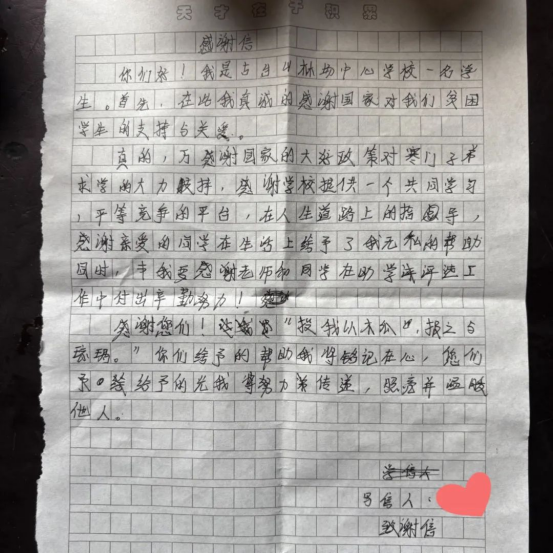 天才在于积累
感谢信
你们好！我是古
林场中心学校一名学
生。首先，在此我真诚的感谢国家对我们贫困
学生的支持与关爱。
真的，万感谢国家的大好政策对寒门子弟
求学的大力扶持，感谢学校提供一个共同学习
，平等竞争的平台，在人生道路上的指导，
感谢亲爱的同学在生活上给予了我无私的帮助
同时，我要感谢老师和同学在助学金评选工
作中付出辛勤努力！
感谢您们！“投我以木瓜”，报之与
琼琚。”你们给予的帮助我将铭记在心，您们
给予的光我将努力来传递，照亮并温暖
他人。
写信人：
致谢信